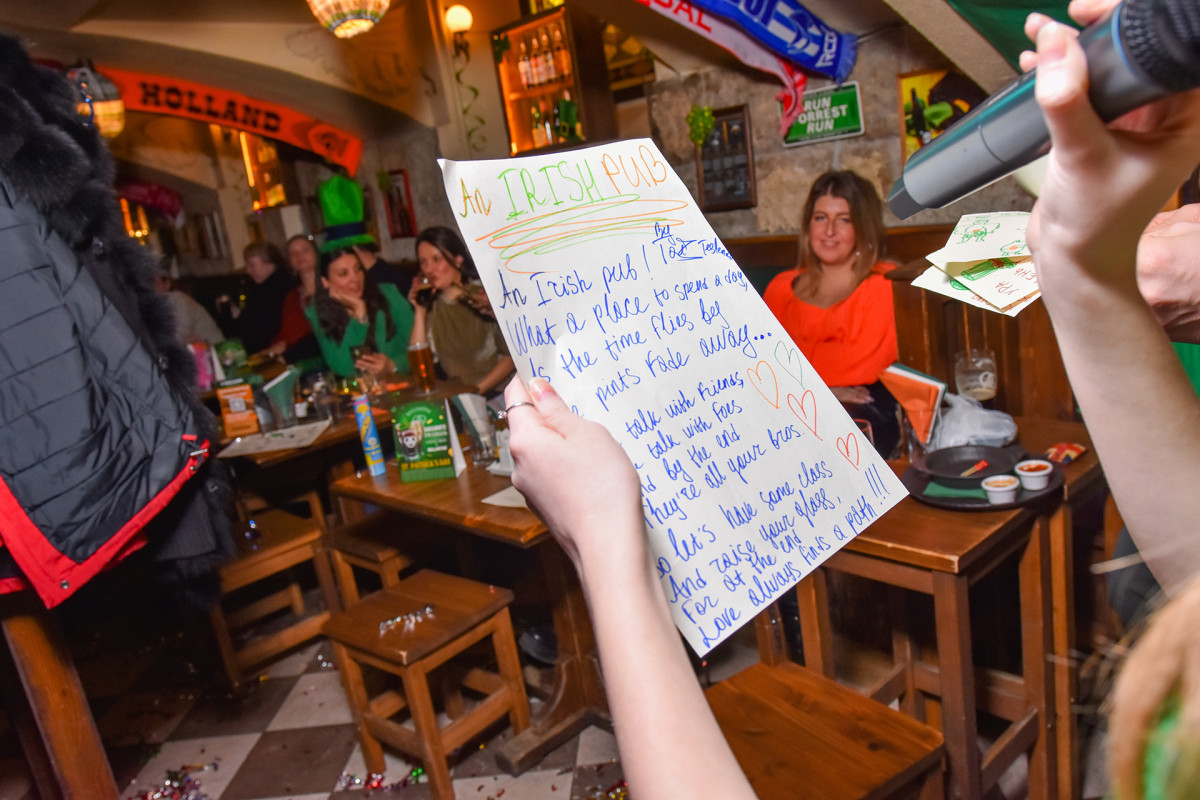 HOLLAND
RUN
FORREST
RUN
An IRISH PUB
By
An Irish pub!
What a place to spend a day,
As the time flies by
pints fade away...
talk with friends,
talk with foes
And by the end
They're all your bros.
So let's have some class
And raise your glass,
For at the end
Love always finds a path!!!
ST. PATRICK'S DAY